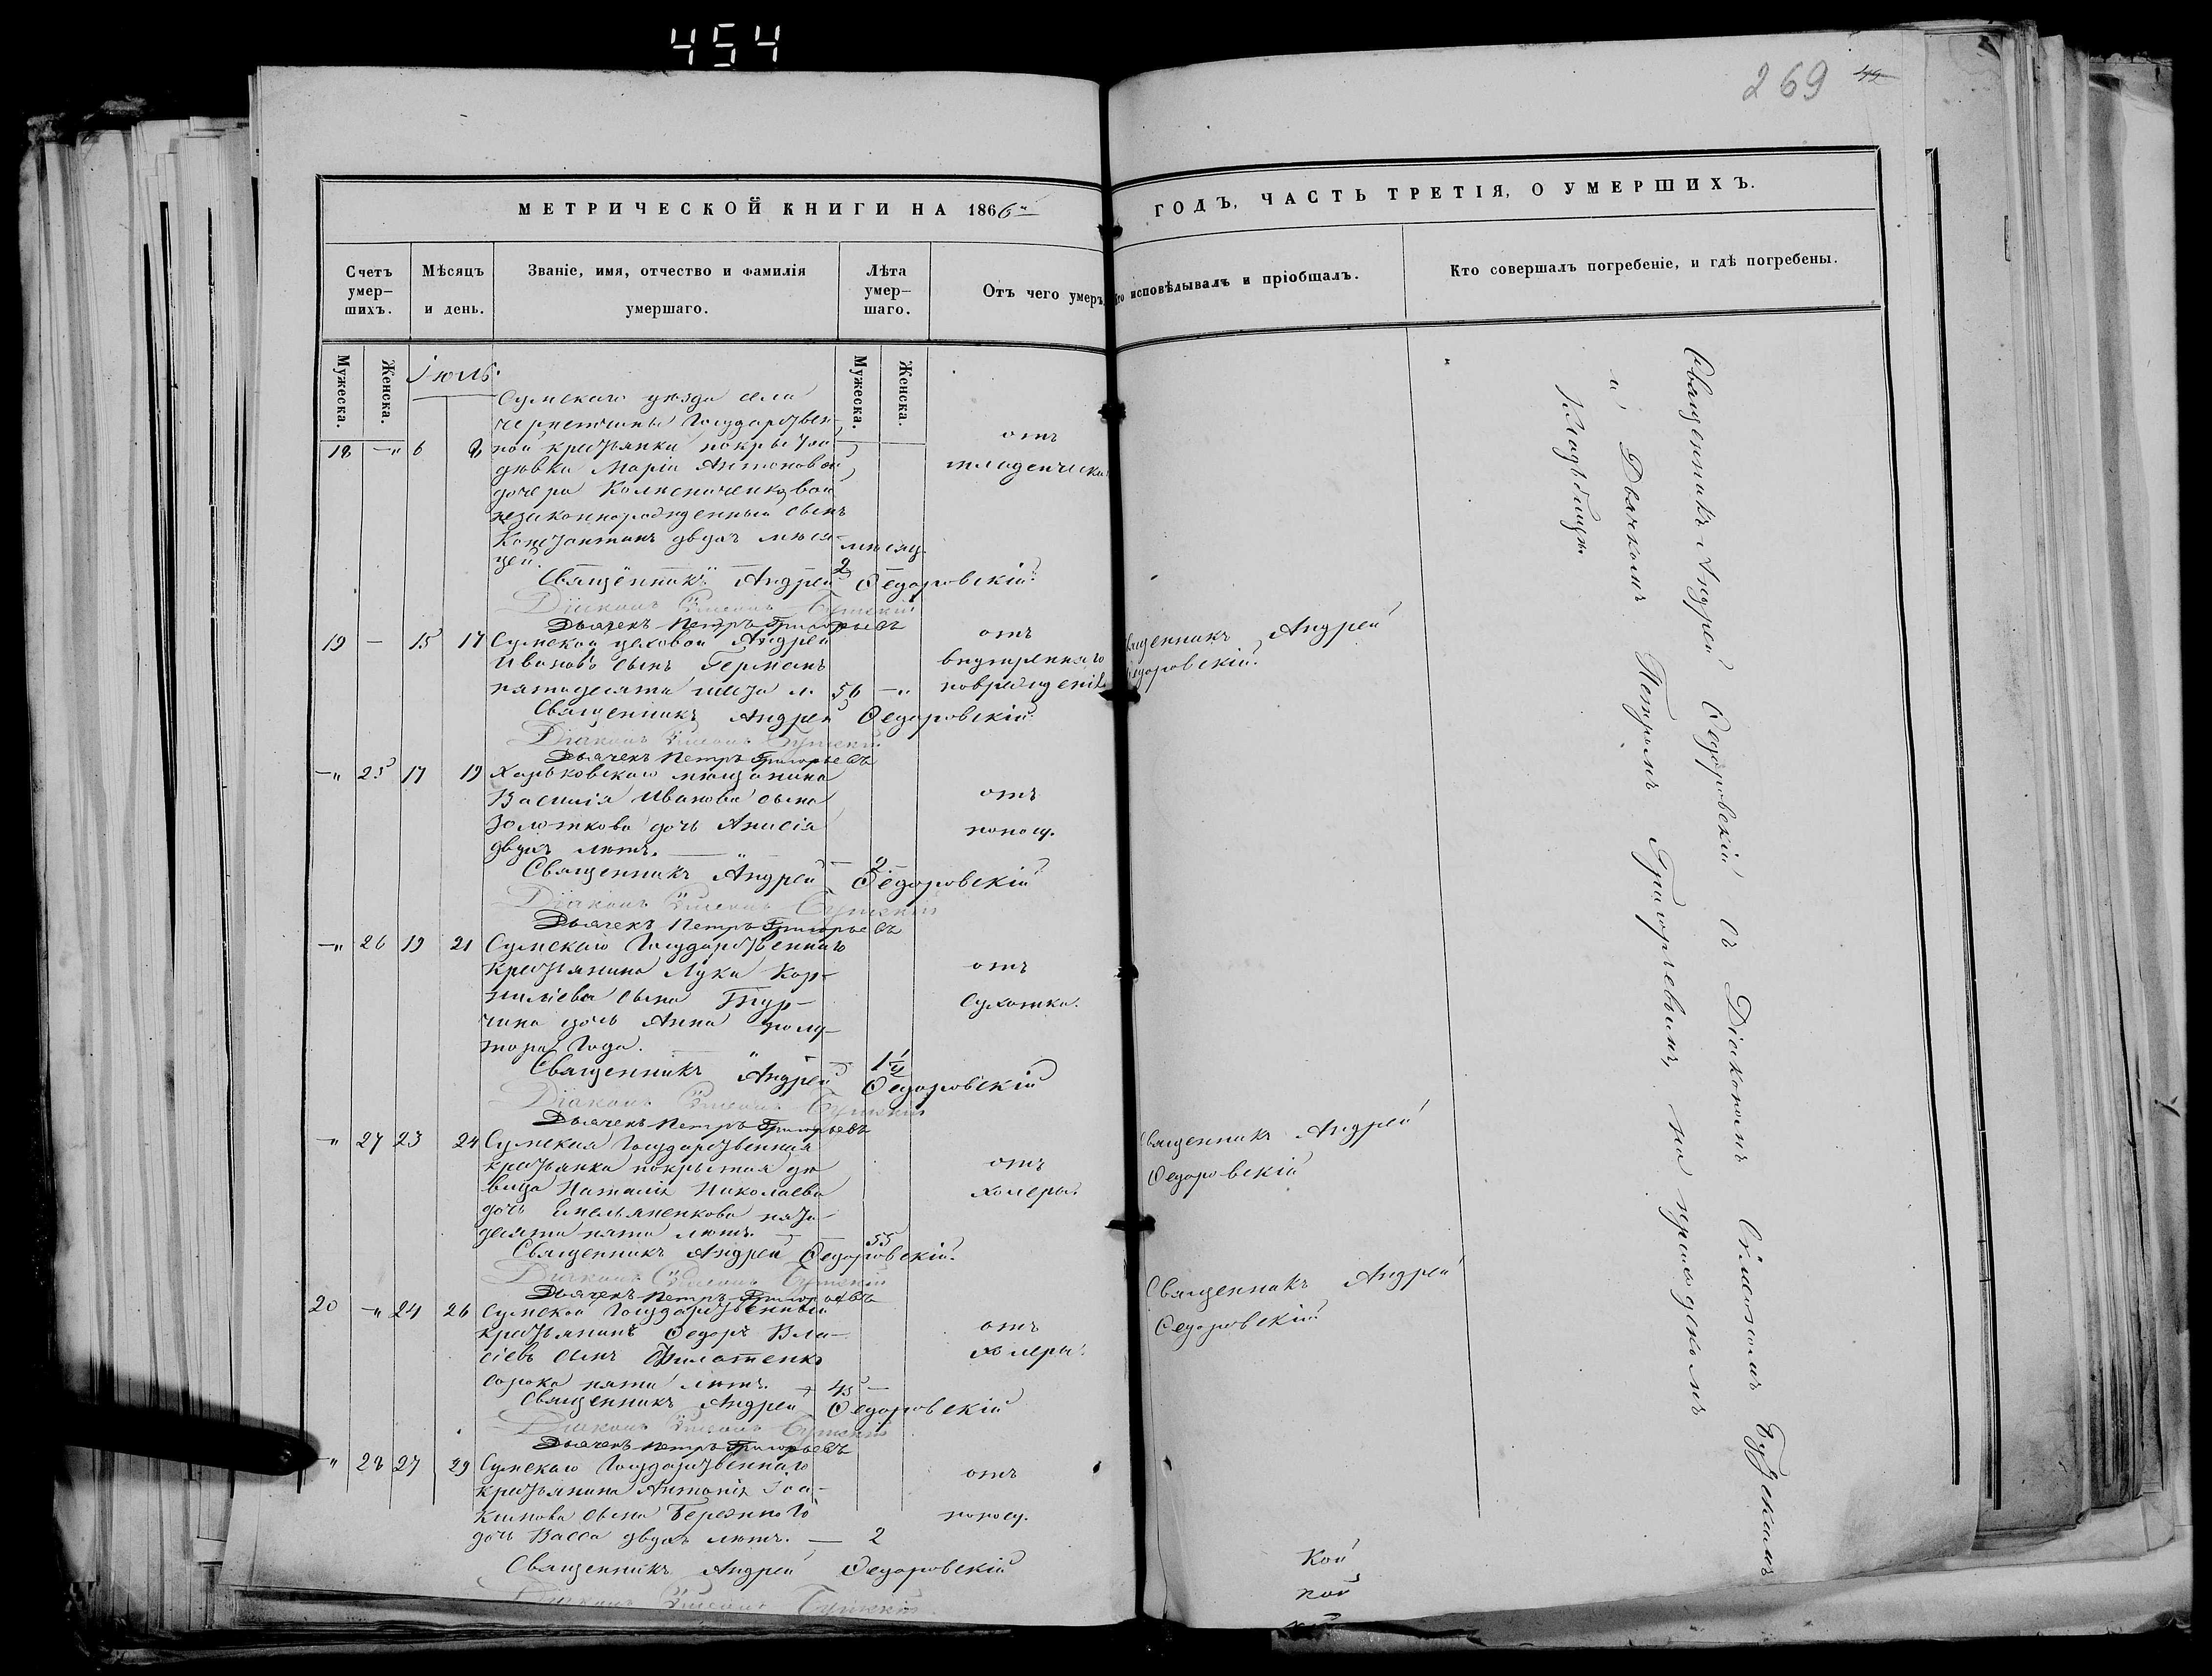 454
269
МЕТРИЧЕСКОЙ КНИГИ НА 1866й
ГОДЪ, ЧАСТЬ ТРЕТІЯ, О УМЕРШИХЪ.
Счетъ умер-
шихъ.
Мѣсяцъ
и день.
Званіе, имя, отчество и фамилія
умершаго.
Лѣта
умер-
шаго.
Отъ чего умеръ
исповѣдывалъ и пріобщалъ.
Кто совершалъ погребеніе, и гдѣ погребены.
Мужеска.
Женска.
Іюль.
Мужеска.
Женска.
Сумскаго уѣзда села
Государствен-
18 —" 6 8 ной крестьянки покрытой отъ
дѣвки Маріи Антоновой младенческа
дочери
незаконнорожденный сынъ
Константинъ двухъ мѣся- мѣсяц.
цей. 2
Священникъ Андрей Ѳедоровскій.
Діаконъ Сѵмеонъ
Дьячекъ Петръ Григорьевъ
19 — 15 17 Сумской цеховой Андрей отъ Священникъ Андрей
Ивановъ сынъ Германъ внутренняго Ѳедоровскій.
пятьдесятъ шести л. 56 —" поврежденія
Священникъ Андрей Ѳедоровскій.
Діаконъ Сѵмеонъ
Дьячекъ Петръ Григорьевъ
—" 25 17 19 Харьковскаго мѣщанина
Василія Иванова сына отъ
Золоткова дочь Анисія поносу.
двухъ лѣтъ. — 2
Священникъ Андрей Ѳедоровскій
Діаконъ Сѵмеонъ
Дьячекъ Петръ Григорьевъ
—" 26 19 21 Сумскаго Государственнаго
крестьянина Луки Кор- отъ
ниліева сына Тур- Сухотки.
чина дочь Анна полу-
тора года. 1½
Священникъ Андрей Ѳедоровскій
Діаконъ Сѵмеонъ
Дьячекъ Петръ Григорьевъ
—" 27 23 24 Сумская Государственная Священникъ Андрей
крестьянка покрытая дѣ- отъ Ѳедоровскій
вица Наталія Николаева холеры.
дочь Емельяненкова пять-
десятъ пяти лѣтъ. — 55
Священникъ Андрей Ѳедоровскій.
Діаконъ Сѵмеонъ
Дьячекъ Петръ Григорьевъ
20 —" 24 26 Сумской Государственный Священникъ Андрей
крестьянинъ Ѳедоръ Вла- отъ Ѳедоровскій
сіевъ сынъ Филатенко холеры.
сорока пяти лѣтъ. 45 —
Священникъ Андрей Ѳедоровскій
Діаконъ Сѵмеонъ
Дьячекъ Петръ Григорьевъ
—" 28 27 29 Сумскаго Государственнаго отъ
крестьянина Антонія Іоа-
кимова сына Бережного поносу.
дочь Васса двухъ лѣтъ. — 2
Священникъ Андрей Ѳедоровскій
Діаконъ Сѵмеонъ
Священникъ Андрей Ѳедоровскій съ Діакономъ Сѵмеономъ
и Дьячкомъ Петромъ Григорьевымъ, на приходскомъ
Кладбищѣ.
кой
ной